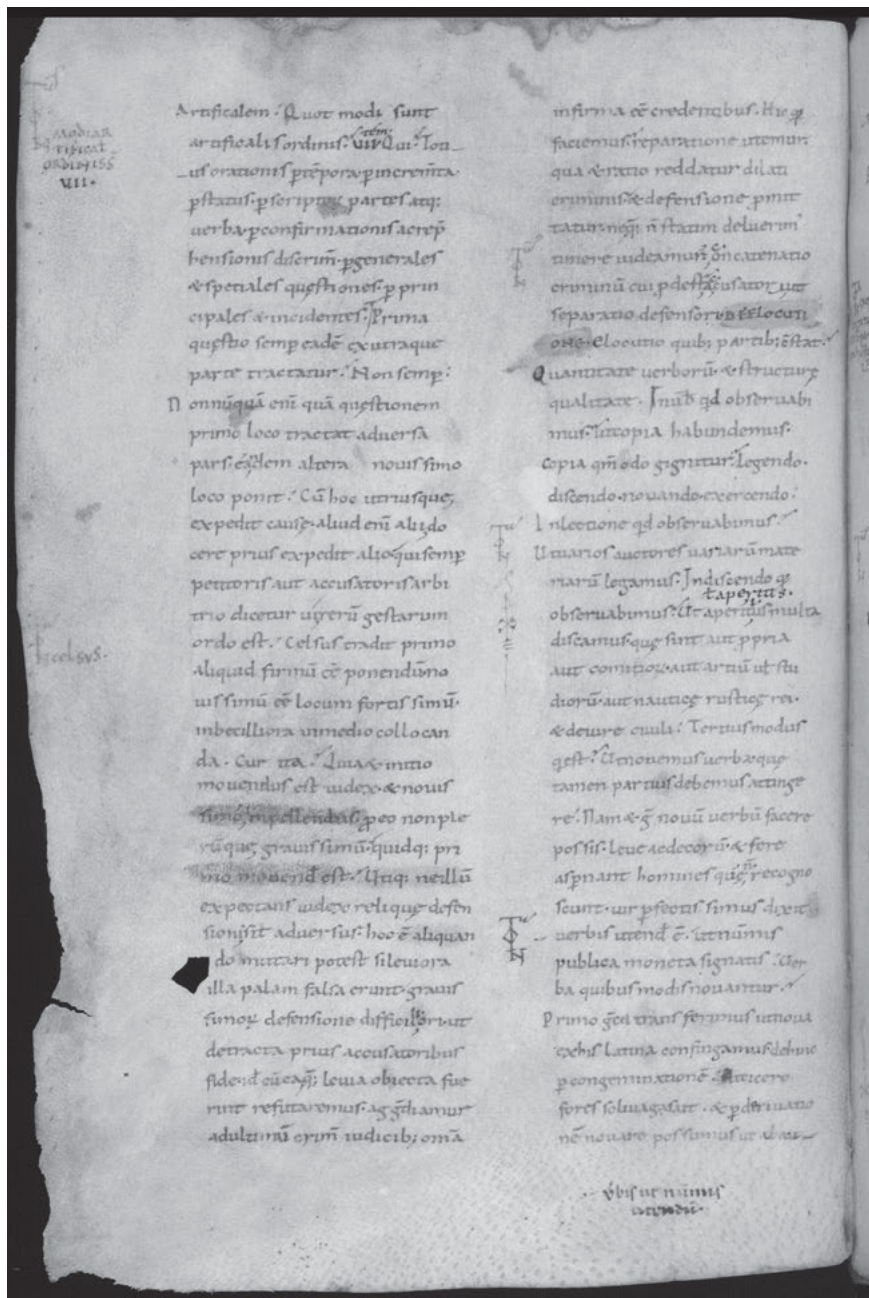 MODI AR
TIFICAL
ORDINIS S
VII.
Artificalem. Quot modi sunt
artificalis ordinis. VII. Qui. Toti
us orationis ꝑ tēpora ꝑ incremta
ꝑ status. ꝑ scripti partes atq;
verba. ꝑ confirmationis ac rep̄
hensionis discrim̄. ꝑ generales
& spetiales questiones. ꝑ prin
cipales & incidentes. Prima
questio semꝑ eadē ex utraque
parte tractatur. Non semꝑ.
Nonnūquā eni quā questionem
primo loco tractat adversa
pars. eādem altera novissimo
loco ponit. Cū hoc utriusque
expedit cause. aliud eni alido
cere prius expedit alioqui semꝑ
petitoris aut accusatoris arbi
trio dicetur ut rerū gestarum
ordo est. Celsus tradit primo
CELSUS.
aliquid firmū ēē ponendū no
vissimū ēē locum fortissimū.
inbecilliora in medio collocan
da. Cur ita. Quia & initio
movendus est iudex. & novis
simo inpellendus. ꝓ eo non ple
rūque gravissimū. quidq; pri
mo movend est. Utiq; ne illū
expectans iudex relique defen
sioni sit adversus. hoc ē aliquan
do mutari potest si leviora
illa palam falsa erunt. gravis
simoꝝ defensione difficiliori. ut
detracta prius accusatoribus
fide.
levia obiecta fue
rint refutaremus. aggdiamur
ad ultimū crim̄ iudicib; omā
infirma ēē credentibus. Hic
faciemus. reparatione utemur
qua & ratio reddatur dilati
criminis. & defensione ꝓmit
tatur. neq; n̄ statim deluerim
timere videamur
catenatio
criminū cui ꝓdest accusatori ut
separatio defensori. DE ELOCUTI
ONE. Elocutio quib; partib; cstat.
Quantitate verborū. & structure
qualitate. In
qd observabi
mus. Ut copia habundemus.
Copia qmodo gignitur. Legendo.
discendo. novando. exercendo.
In lectione qd observabimus.
Ut varios auctores variarū mate
riarū legamus. In discendo
ł apertius.
observabimus. Ut
multa
discamus. que sint aut ꝓpria
aut comunioꝝ. aut artiū ut stu
diorū. aut nautice rustice rei.
& de iure civili. Tertius modus
q est. Ut novemus verba. que
tamen partius debemus attinge
re. Nam &
novū verbū facere
possis. leve ac decorū. & fere
aspnant homines que n̄ recogno
scunt. vir ꝑfectissimus dixit
verbis utend ē. ut nūmis
publica moneta signatis. Ver
ba quibus modis novantur.
Primo
transferimus ut nova
ex his Latina confingamus dehinc
ꝑ congeminationē.
fores
& ꝑ derivatio
nē novare possumus ut
ū̄bis ut nūmis
utendū.